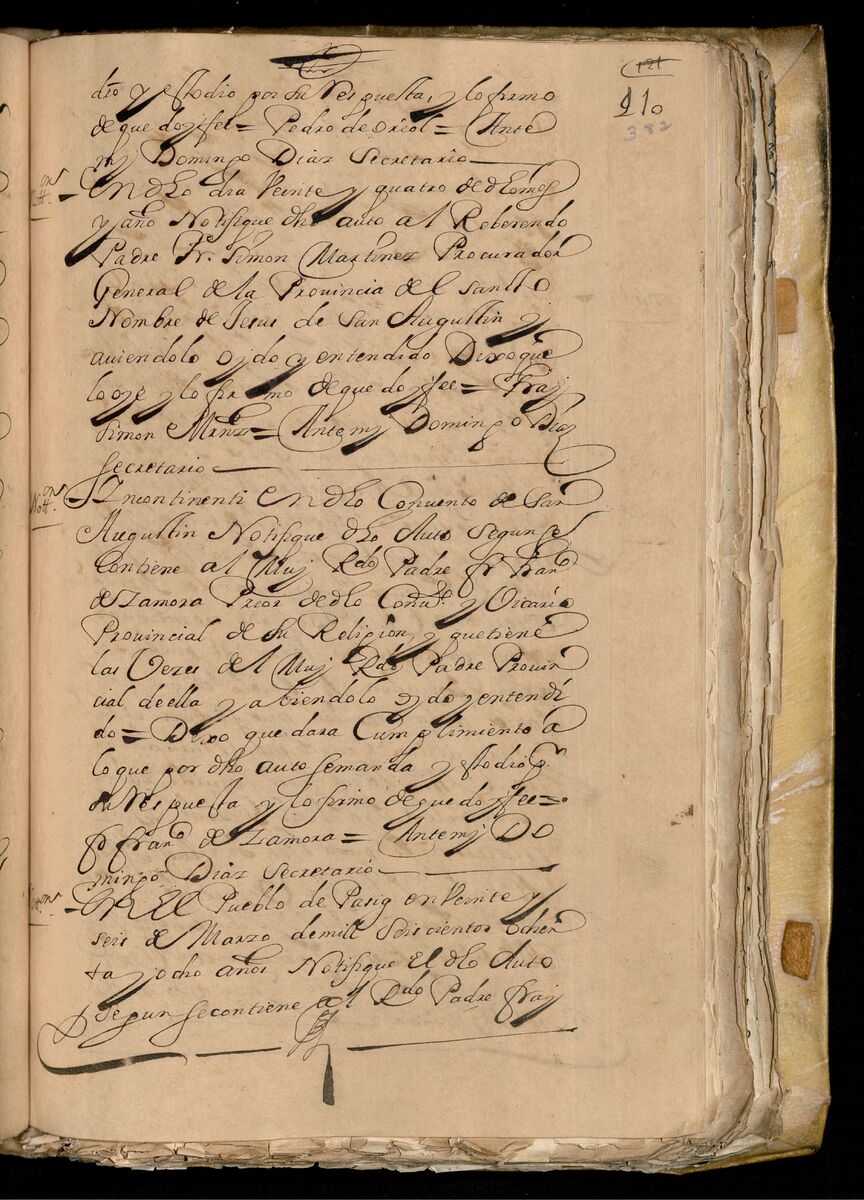 121
110
382
dio y esto dio por su Respuesta, y lo firmo
de que doy fee = Pedro de oriol = Ante
mj Domingo Diaz Secretario
Nott.on
En dho dia Veinte y quatro de dho mes
y año Notifique dho auto al Reberendo
Padre Fr. Simon Martinez Procurador
General de la Provincia del Santto
Nombre de Jesus de San Augustin y
auiendolo oydo y entendido Dixo que
lo oye y lo firmo de que doy fee = Fray
Simon Mrnz = Ante mj Domingo Diaz
Secretario
Nott.on
Yncontinenti En dho Conuento de San
Augustin Notifique dho Auto Segun se
Contiene al Muj Rdo Padre fr Franco
de Zamora Prior de dho Conuto y Vicario
Provincial de su Religion, y que tiene
las Vezes del Muj Rdo Padre Provin
cial de ella y abiendolo oydo y entendi
do = Dixo que dara Cumplimiento a
lo que por dho auto se manda y esto dio pr
su Respuesta y lo firmo de que doy fee =
fr franco de Zamora = Ante mj Do
mingo Diaz Secretario
Nott.on
En El Pueblo de Pasig en Veinte y
seis de Marzo de mill Seiscientos ochen
ta y ocho años Notifique El dho Auto
Segun se contiene al Rdo Padre fray